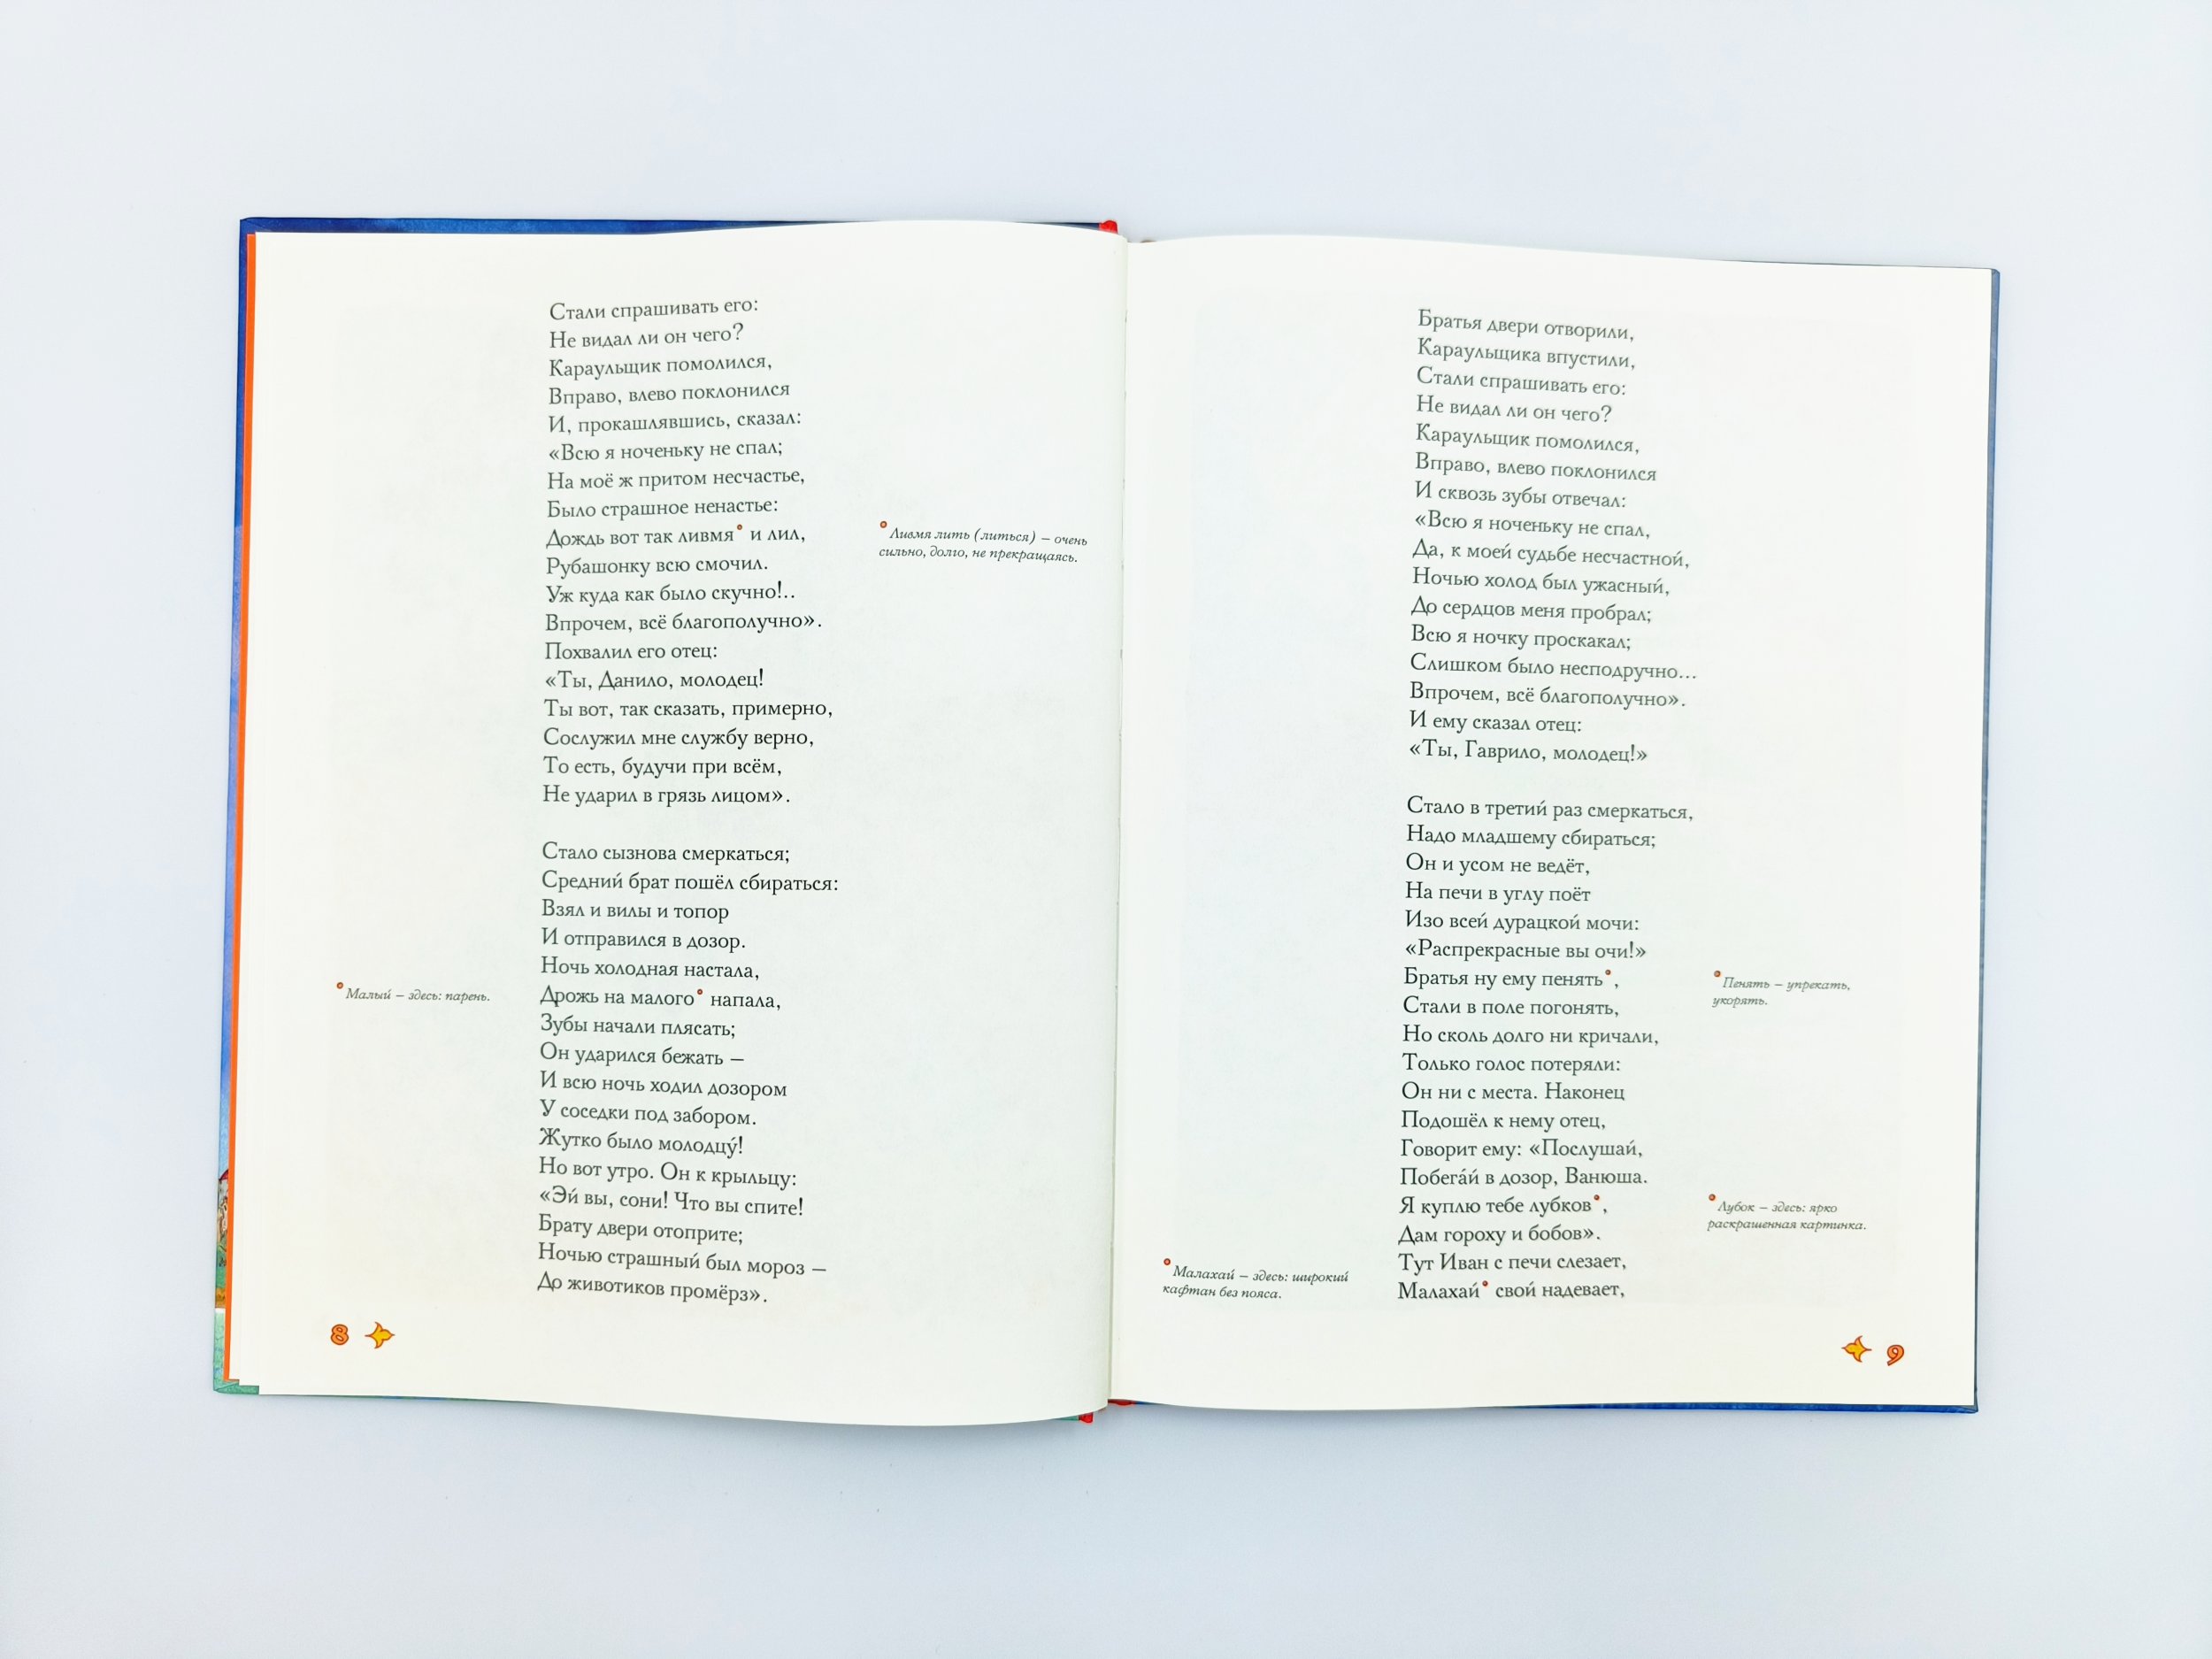 Стали спрашивать его:
Не видал ли он чего?
Караульщик помолился,
Вправо, влево поклонился
И, прокашлявшись, сказал:
«Всю я ноченьку не спал;
На моё ж притом несчастье,
Было страшное ненастье:
Дождь вот так ливмя° и лил,
Рубашонку всю смочил.
Уж куда как было скучно!..
Впрочем, всё благополучно».
Похвалил его отец:
«Ты, Данило, молодец!
Ты вот, так сказать, примерно,
Сослужил мне службу верно,
То есть, будучи при всём,
Не ударил в грязь лицом».
Стало сызнова смеркаться;
Средний брат пошёл сбираться:
Взял и вилы и топор
И отправился в дозор.
Ночь холодная настала,
Дрожь на малого° напала,
Зубы начали плясать;
Он ударился бежать –
И всю ночь ходил дозором
У соседки под забором.
Жутко было молодцу́!
Но вот утро. Он к крыльцу:
«Эй вы, сони! Что вы спите!
Брату двери отоприте;
Ночью страшный был мороз –
До животиков промёрз».
°Ливмя лить (литься) – очень
сильно, долго, не прекращаясь.
°Малый – здесь: парень.
8
Братья двери отворили,
Караульщика впустили,
Стали спрашивать его:
Не видал ли он чего?
Караульщик помолился,
Вправо, влево поклонился
И сквозь зубы отвечал:
«Всю я ноченьку не спал,
Да, к моей судьбе несчастной,
Ночью холод был ужасный,
До сердцов меня пробрал;
Всю я ночку проскакал;
Слишком было несподручно...
Впрочем, всё благополучно».
И ему сказал отец:
«Ты, Гаврило, молодец!»
Стало в третий раз смеркаться,
Надо младшему сбираться;
Он и усом не ведёт,
На печи в углу поёт
Изо всей дурацкой мочи:
«Распрекрасные вы очи!»
Братья ну ему пенять°,
Стали в поле погонять,
Но сколь долго ни кричали,
Только голос потеряли:
Он ни с места. Наконец
Подошёл к нему отец,
Говорит ему: «Послушай,
Побега́й в дозор, Ванюша.
Я куплю тебе лубков°,
Дам гороху и бобов».
Тут Иван с печи слезает,
Малахай° свой надевает,
°Пенять – упрекать,
укорять.
°Лубок – здесь: ярко
раскрашенная картинка.
°Малахай – здесь: широкий
кафтан без пояса.
9